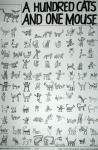 A HUNDRED CATS
AND ONE MOUSE